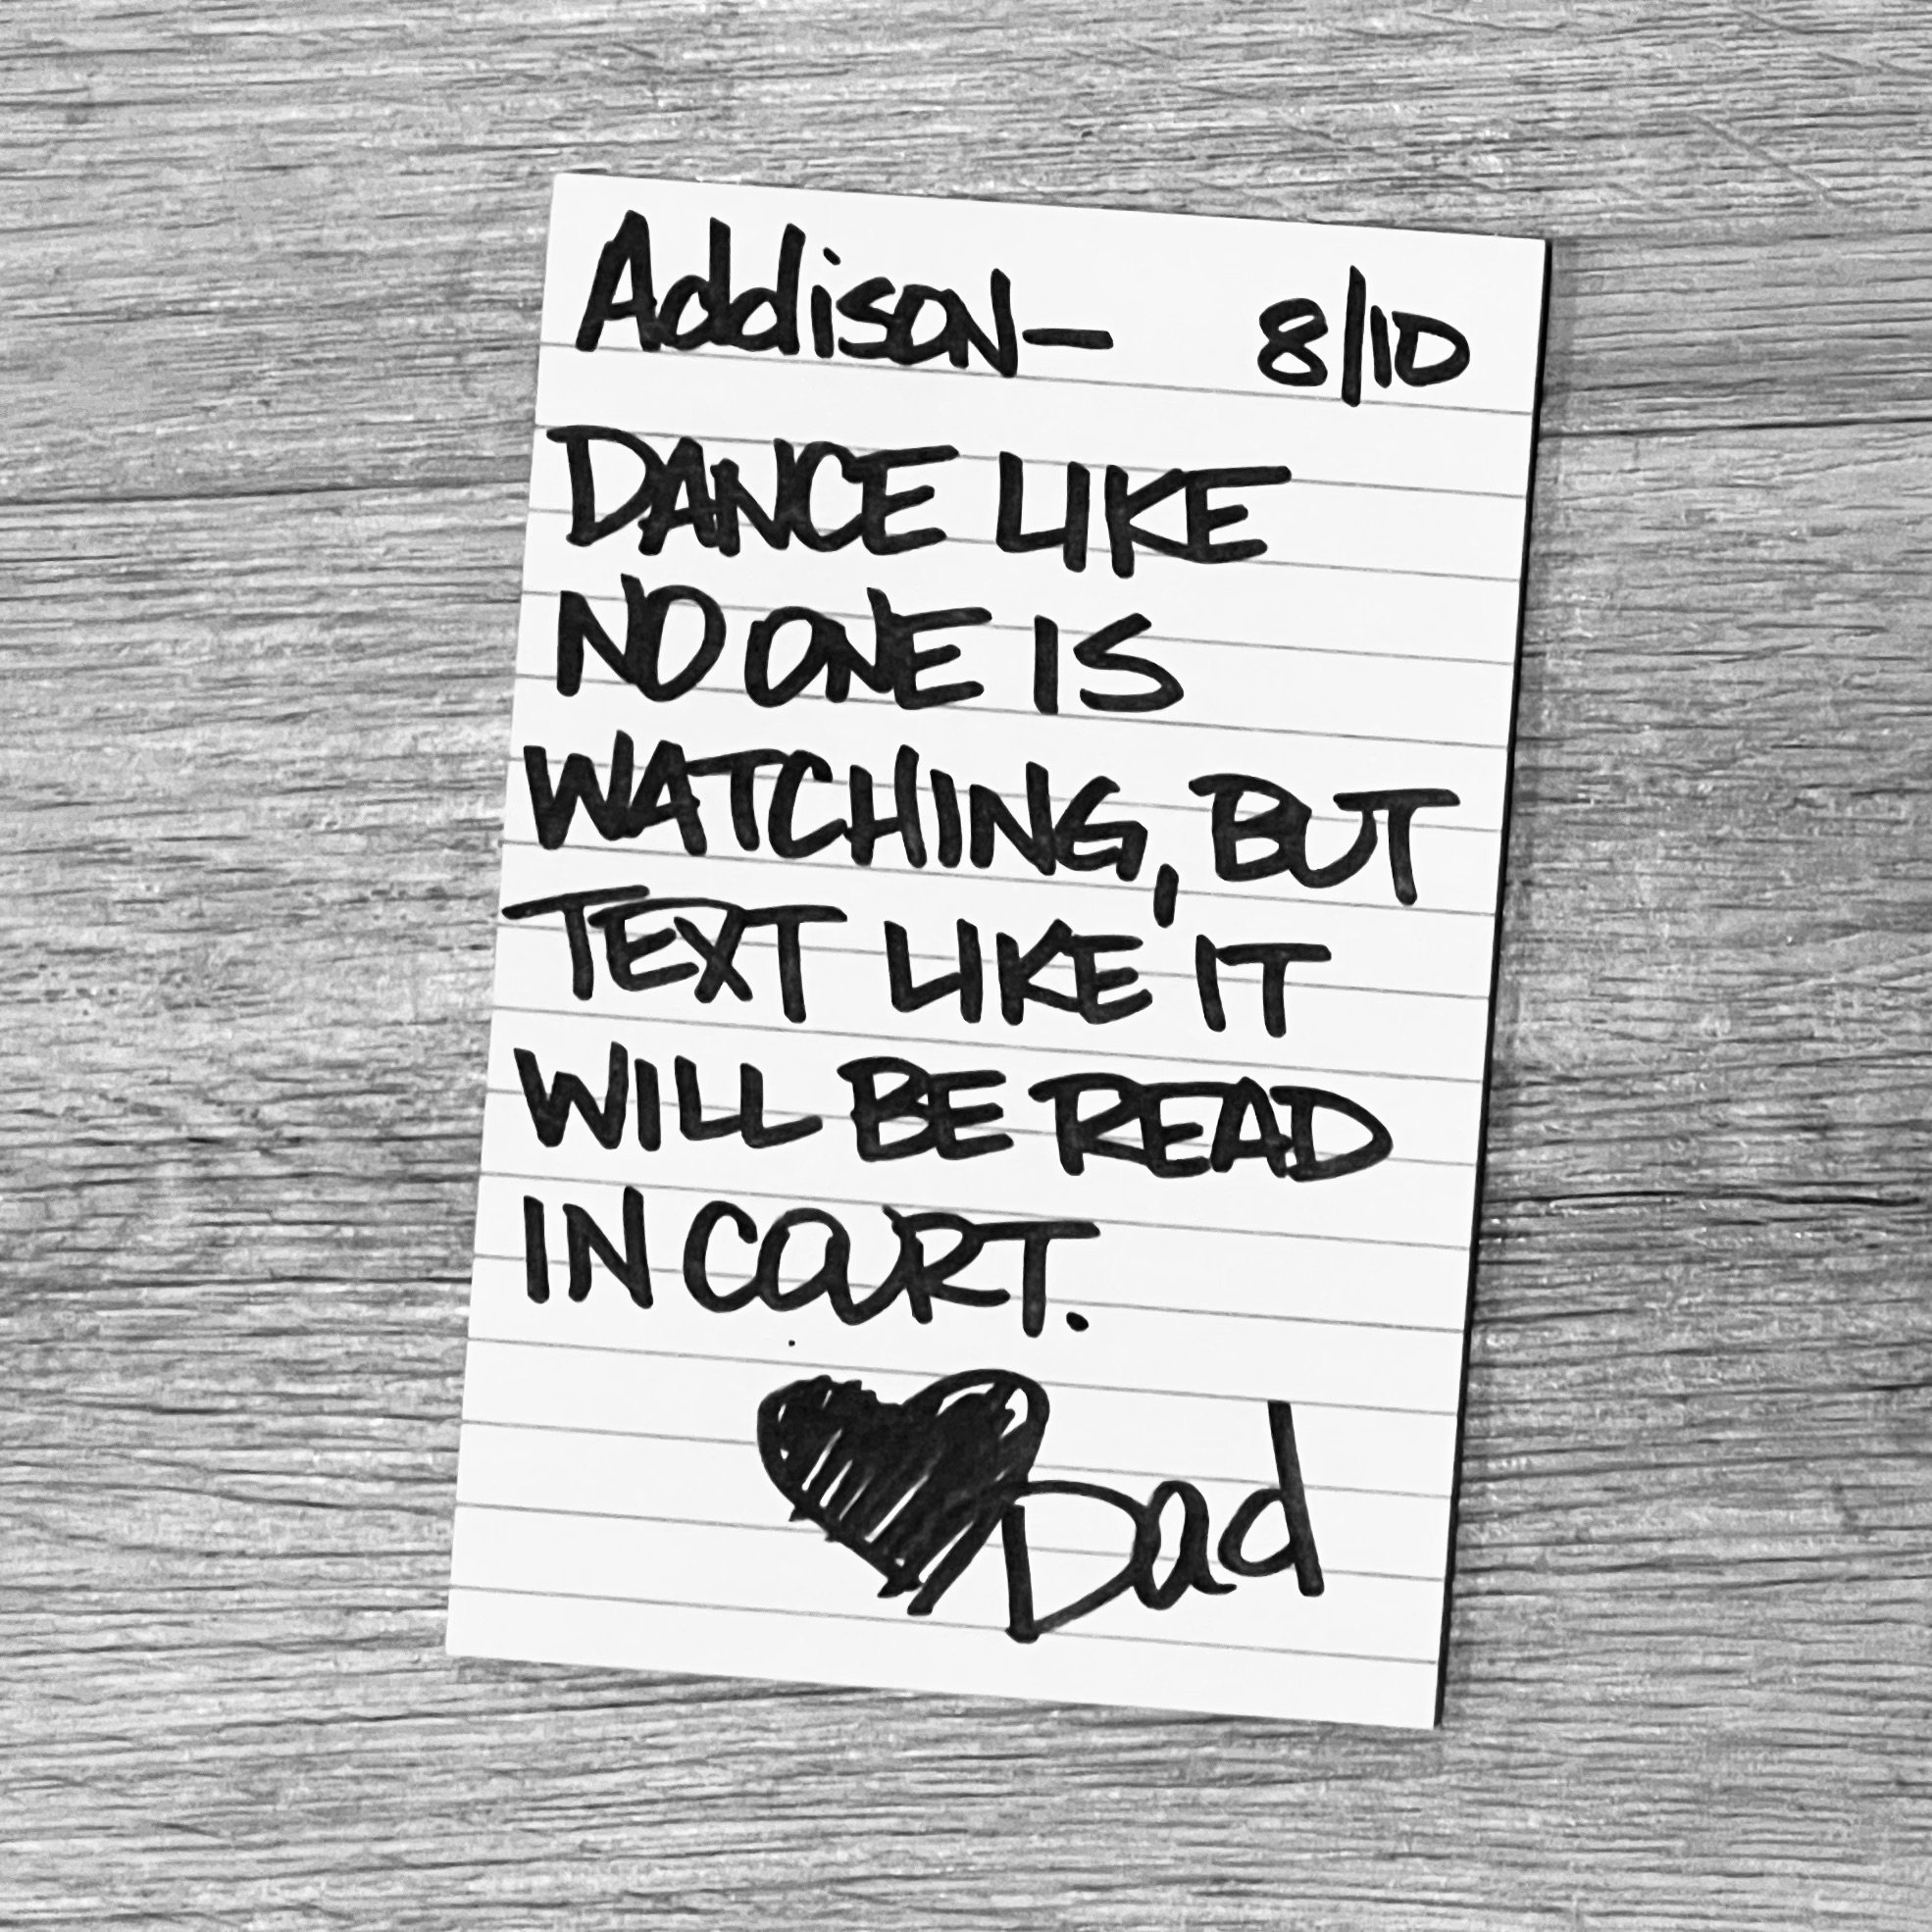 Addison— 8/10
DANCE LIKE
NO ONE IS
WATCHING, BUT
TEXT LIKE IT
WILL BE READ
IN COURT.
Dad